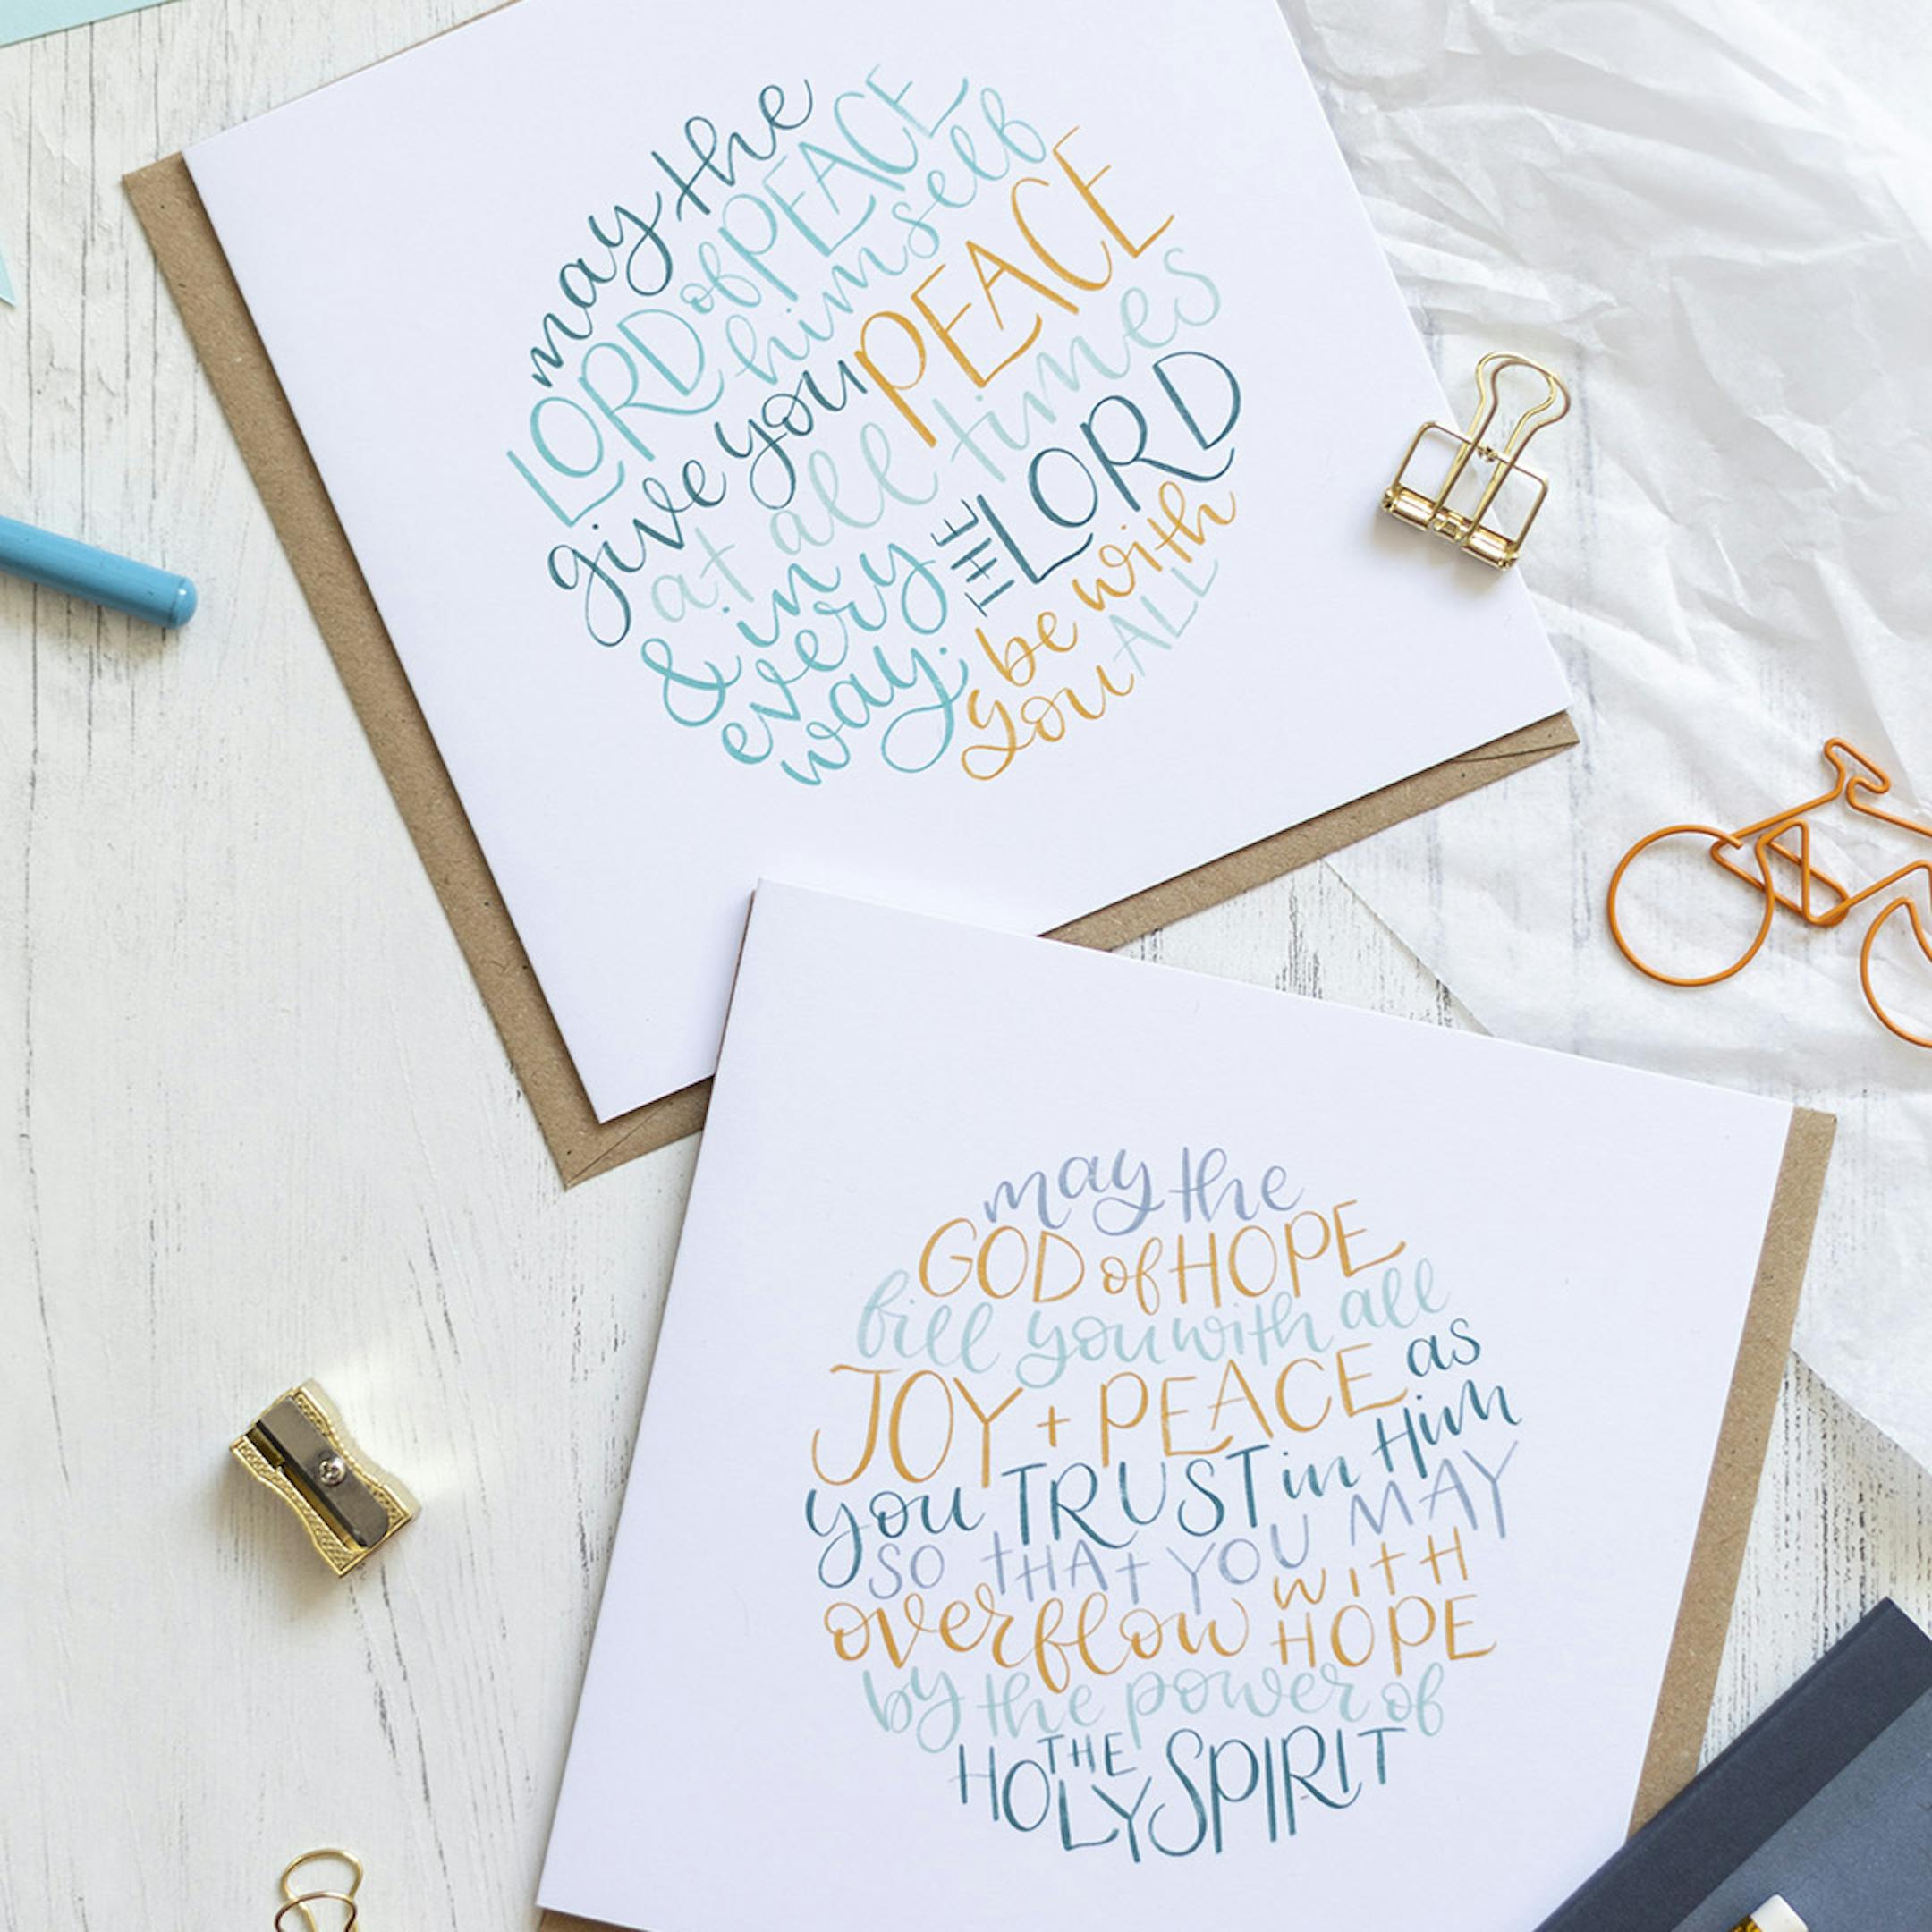 may the
LORD of PEACE
himself
give you PEACE
at all times
& in
every
way.
THE LORD
be with
you ALL
may the
GOD of HOPE
fill you with all
JOY + PEACE as
you TRUST in Him
SO tHAt YOU MAY
overflow WITH
HOPE
by the power of
THE
HOLY SPIRIT